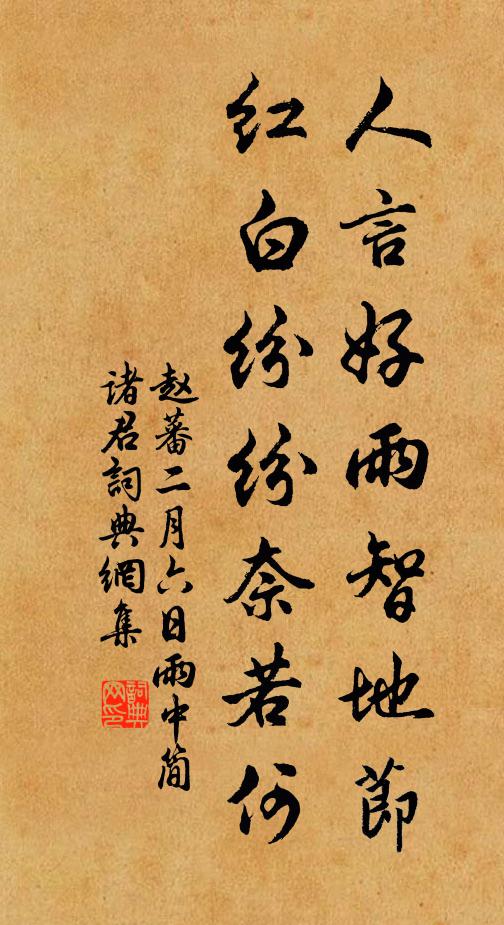 人言好雨智地節
紅白紛紛奈若何
赵蕃二月六日雨中简
诸君詞典網集
詞典网印